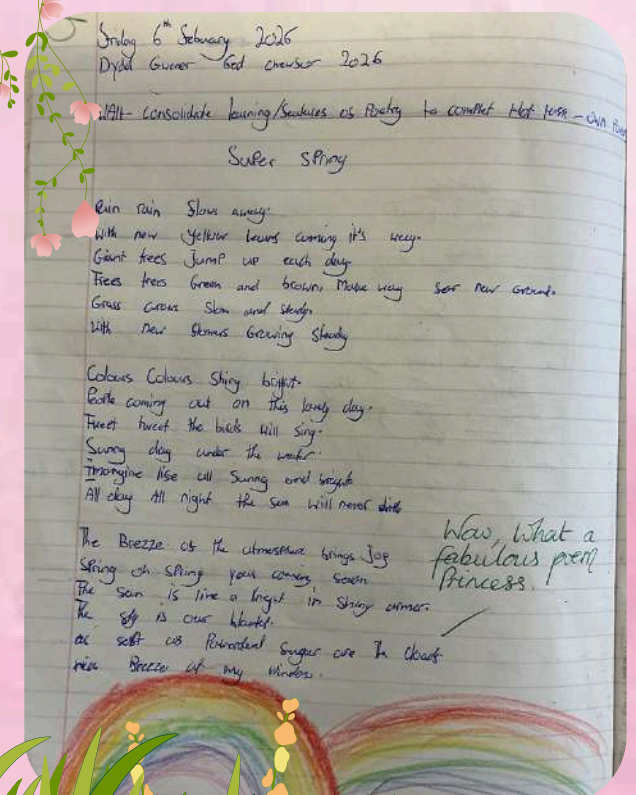 Friday 6th February 2026
Dydd Gwener 6ed chewsror 2026
WALT- Consolidate learning/features of Poetry to complet Hot task - own Poem
Super SPring
Rain rain Slows away.
With new yellow leaves coming it's way.
Giant trees Jump up each day.
Trees trees Green and brown, Make way for new Ground.
Grass Grows Slow and steady.
With new flowers Growing Steady
Colours Colours Shiny bright.
People coming out on this lovely day.
Tweet tweet the birds will sing.
Sunny day under the water.
Imangine life all Sunny and bright
All day All night the sun will never
The Brezze of the atmosphere brings Joy
SPring oh SPring your coming soon
The sun is like a knight in Shiny armor.
The sky is our blanket.
as soft as Powordered Sugar are The clouds
nice Breeze at my window.
Wow, What a
fabulous poem
Princess.